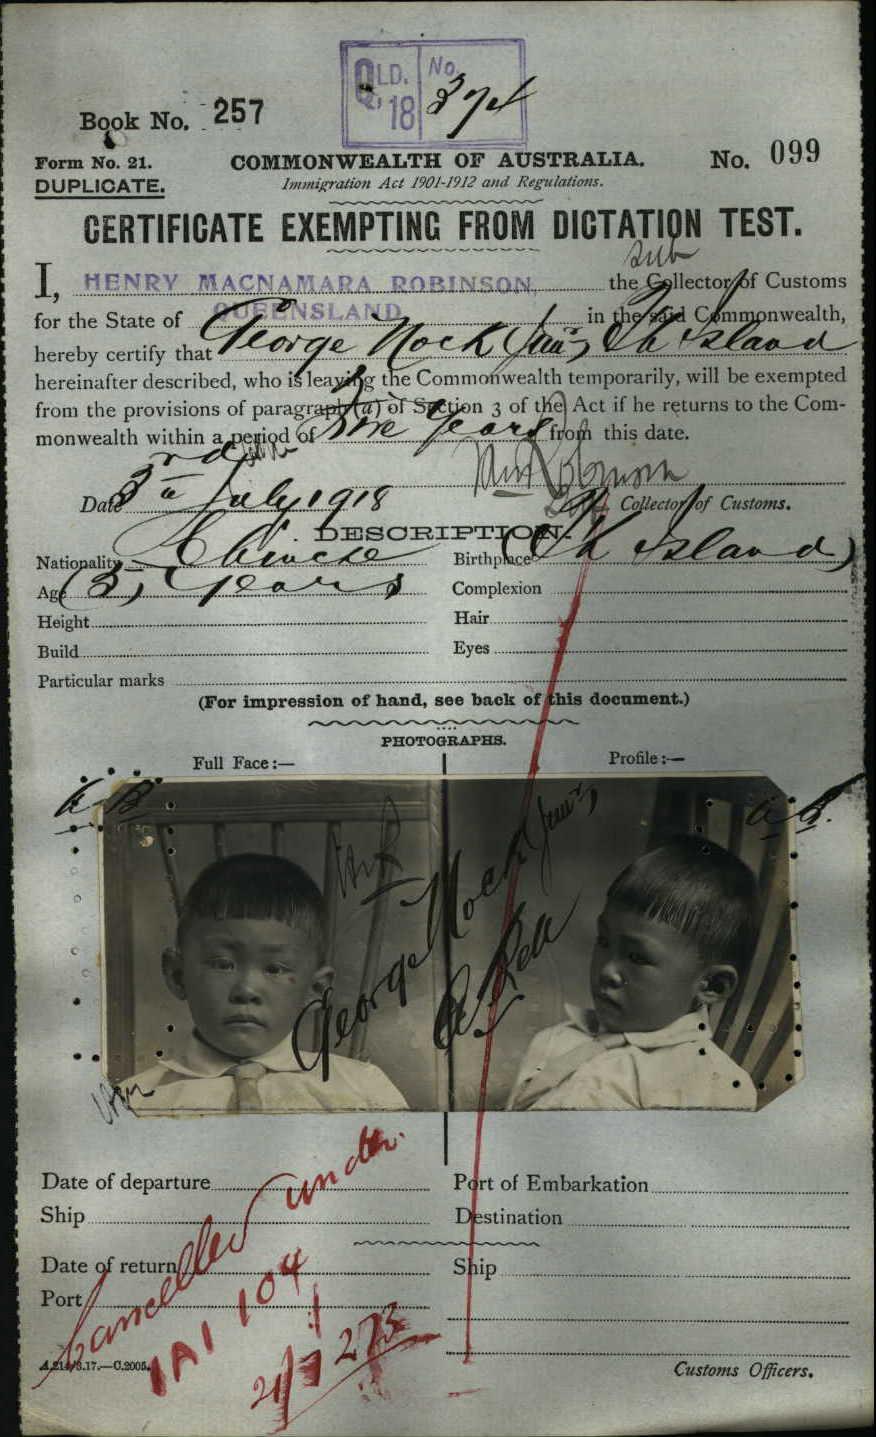 QLD. No.
Q. 18 374
Book No. 257
Form No. 21. COMMONWEALTH OF AUSTRALIA. No. 099
DUPLICATE. Immigration Act 1901-1912 and Regulations.
CERTIFICATE EXEMPTING FROM DICTATION TEST.
Sub
I, HENRY MACNAMARA ROBINSON, the Collector of Customs
for the State of QUEENSLAND in the said Commonwealth,
hereby certify that George Nock Junr, Th Island
hereinafter described, who is leaving the Commonwealth temporarily, will be exempted
from the provisions of paragraph (a) of Section 3 of the Act if he returns to the Com-
monwealth within a period of Years from this date.
Robinson
Date 3rd July 1918 Sub Collector of Customs.
DESCRIPTION.
Nationality Chinese Birthplace (Th Island)
Age (5) years Complexion
Height Hair
Build Eyes
Particular marks
(For impression of hand, see back of this document.)
PHOTOGRAPHS.
Full Face:— Profile:—
George Nock Junr,
Date of departure Port of Embarkation
Ship Destination
Date of return Ship
Port
Cancelled under
1A1 104
21/7 273
A.214/3.17.—C.2005. Customs Officers.